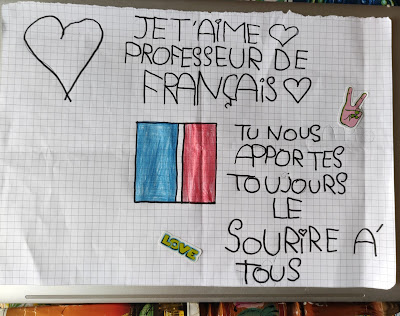 JE T'AIME
PROFESSEUR DE
FRANÇAIS
TU NOUS
APPORTES
TOUJOURS
LE
SOURIRE A'
TOUS
LOVE